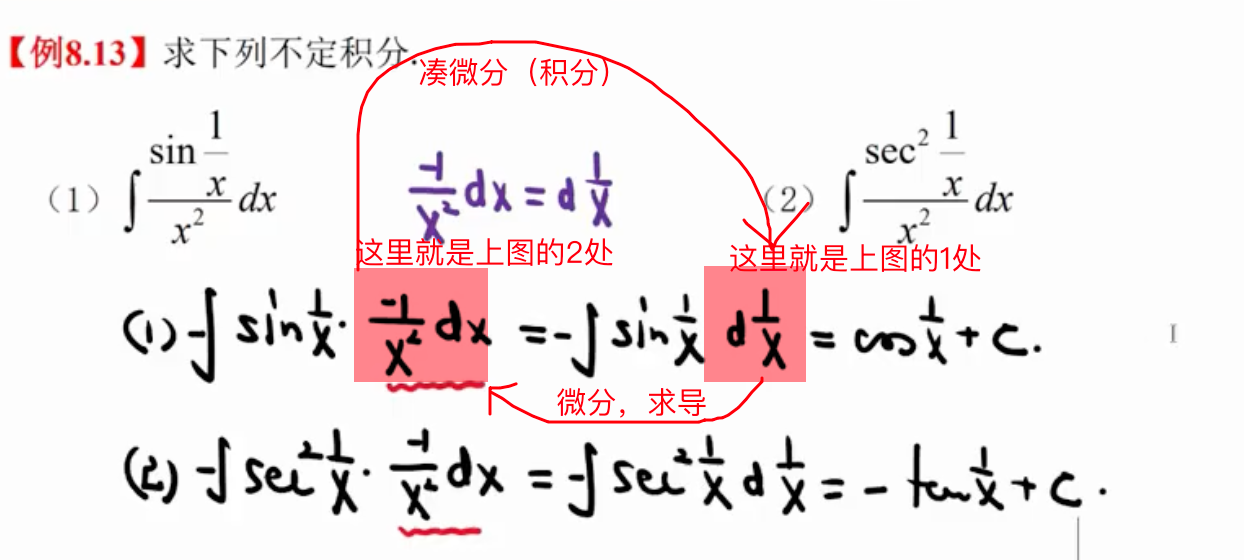 【例8.13】求下列不定积分.
凑微分（积分）
（1）∫ (sin 1/x)/x² dx
-1/x² dx = d 1/x
（2）∫ (sec² 1/x)/x² dx
这里就是上图的2处
这里就是上图的1处
(1) -∫ sin 1/x · -1/x² dx = -∫ sin 1/x d 1/x = cos 1/x + C.
微分，求导
(2) -∫ sec² 1/x · -1/x² dx = -∫ sec² 1/x d 1/x = - tan 1/x + C.